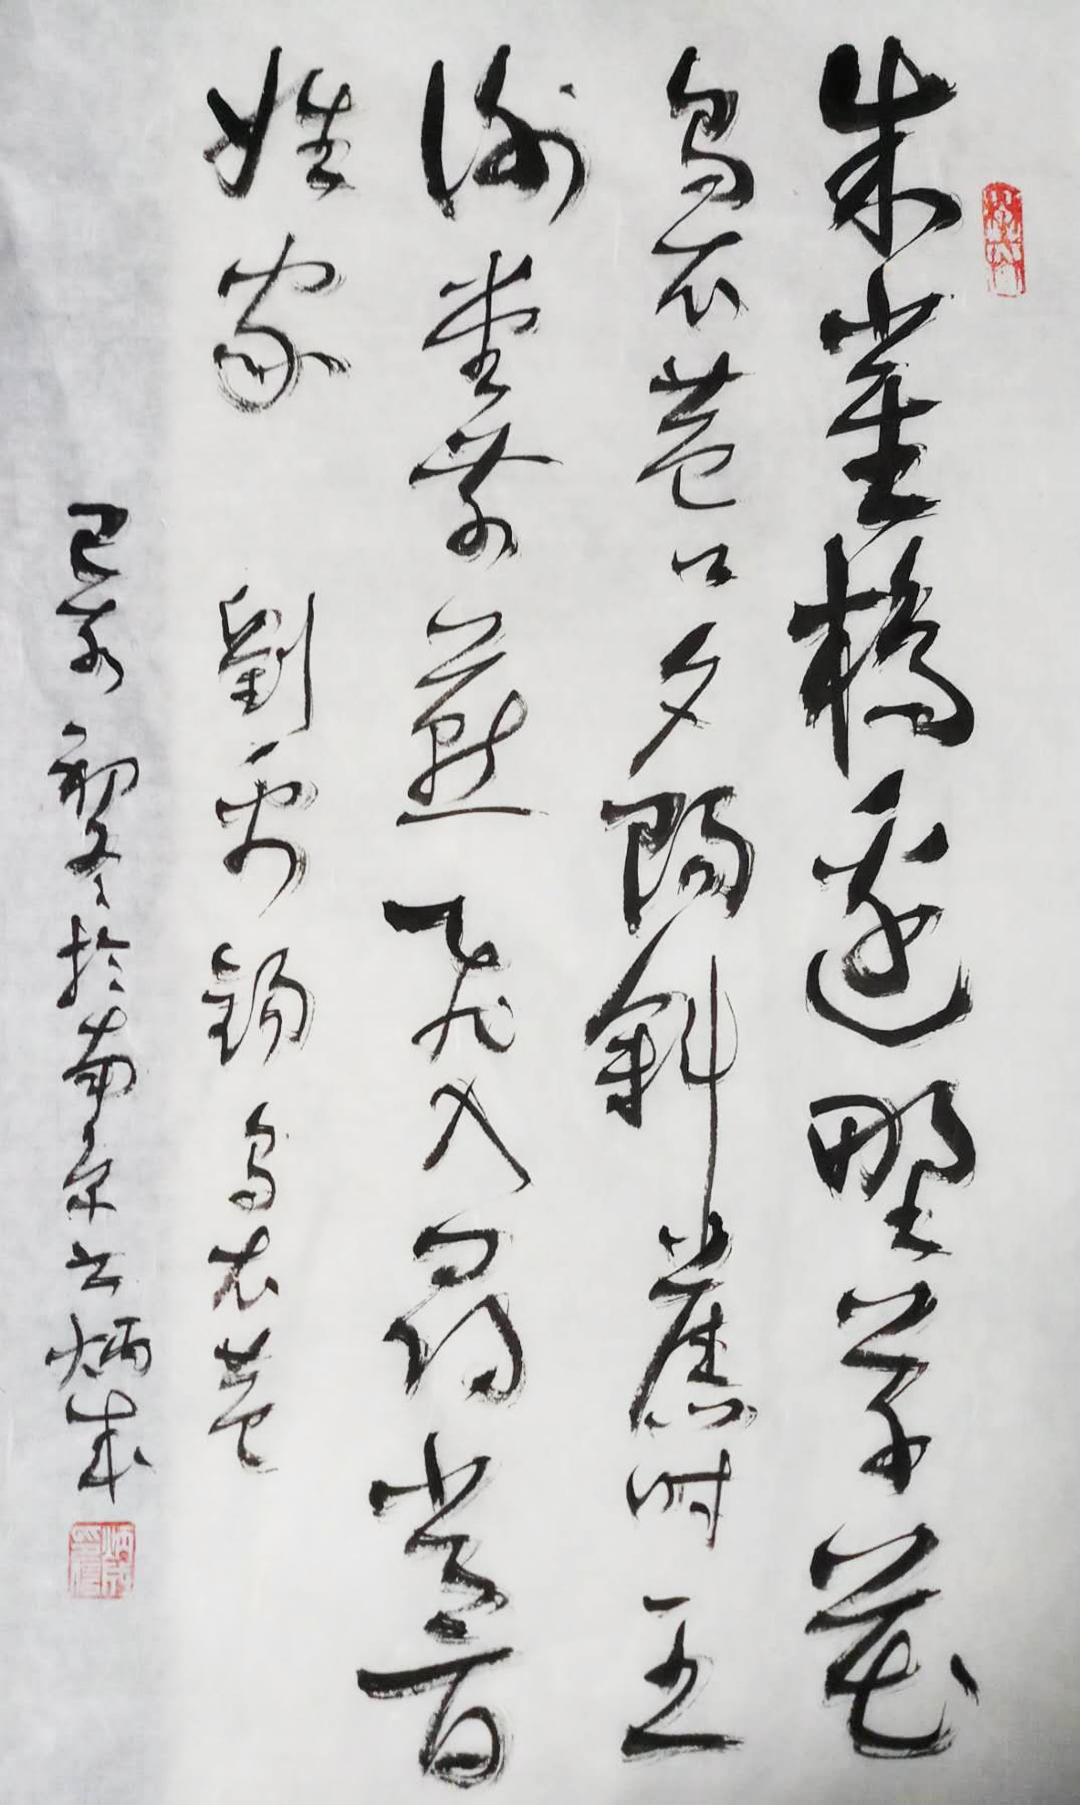 朱雀橋邊野草花
烏衣巷口夕陽斜舊時王
謝堂前燕飛入尋常百
姓家 劉禹錫 烏衣巷
己亥初冬於南京 炳成